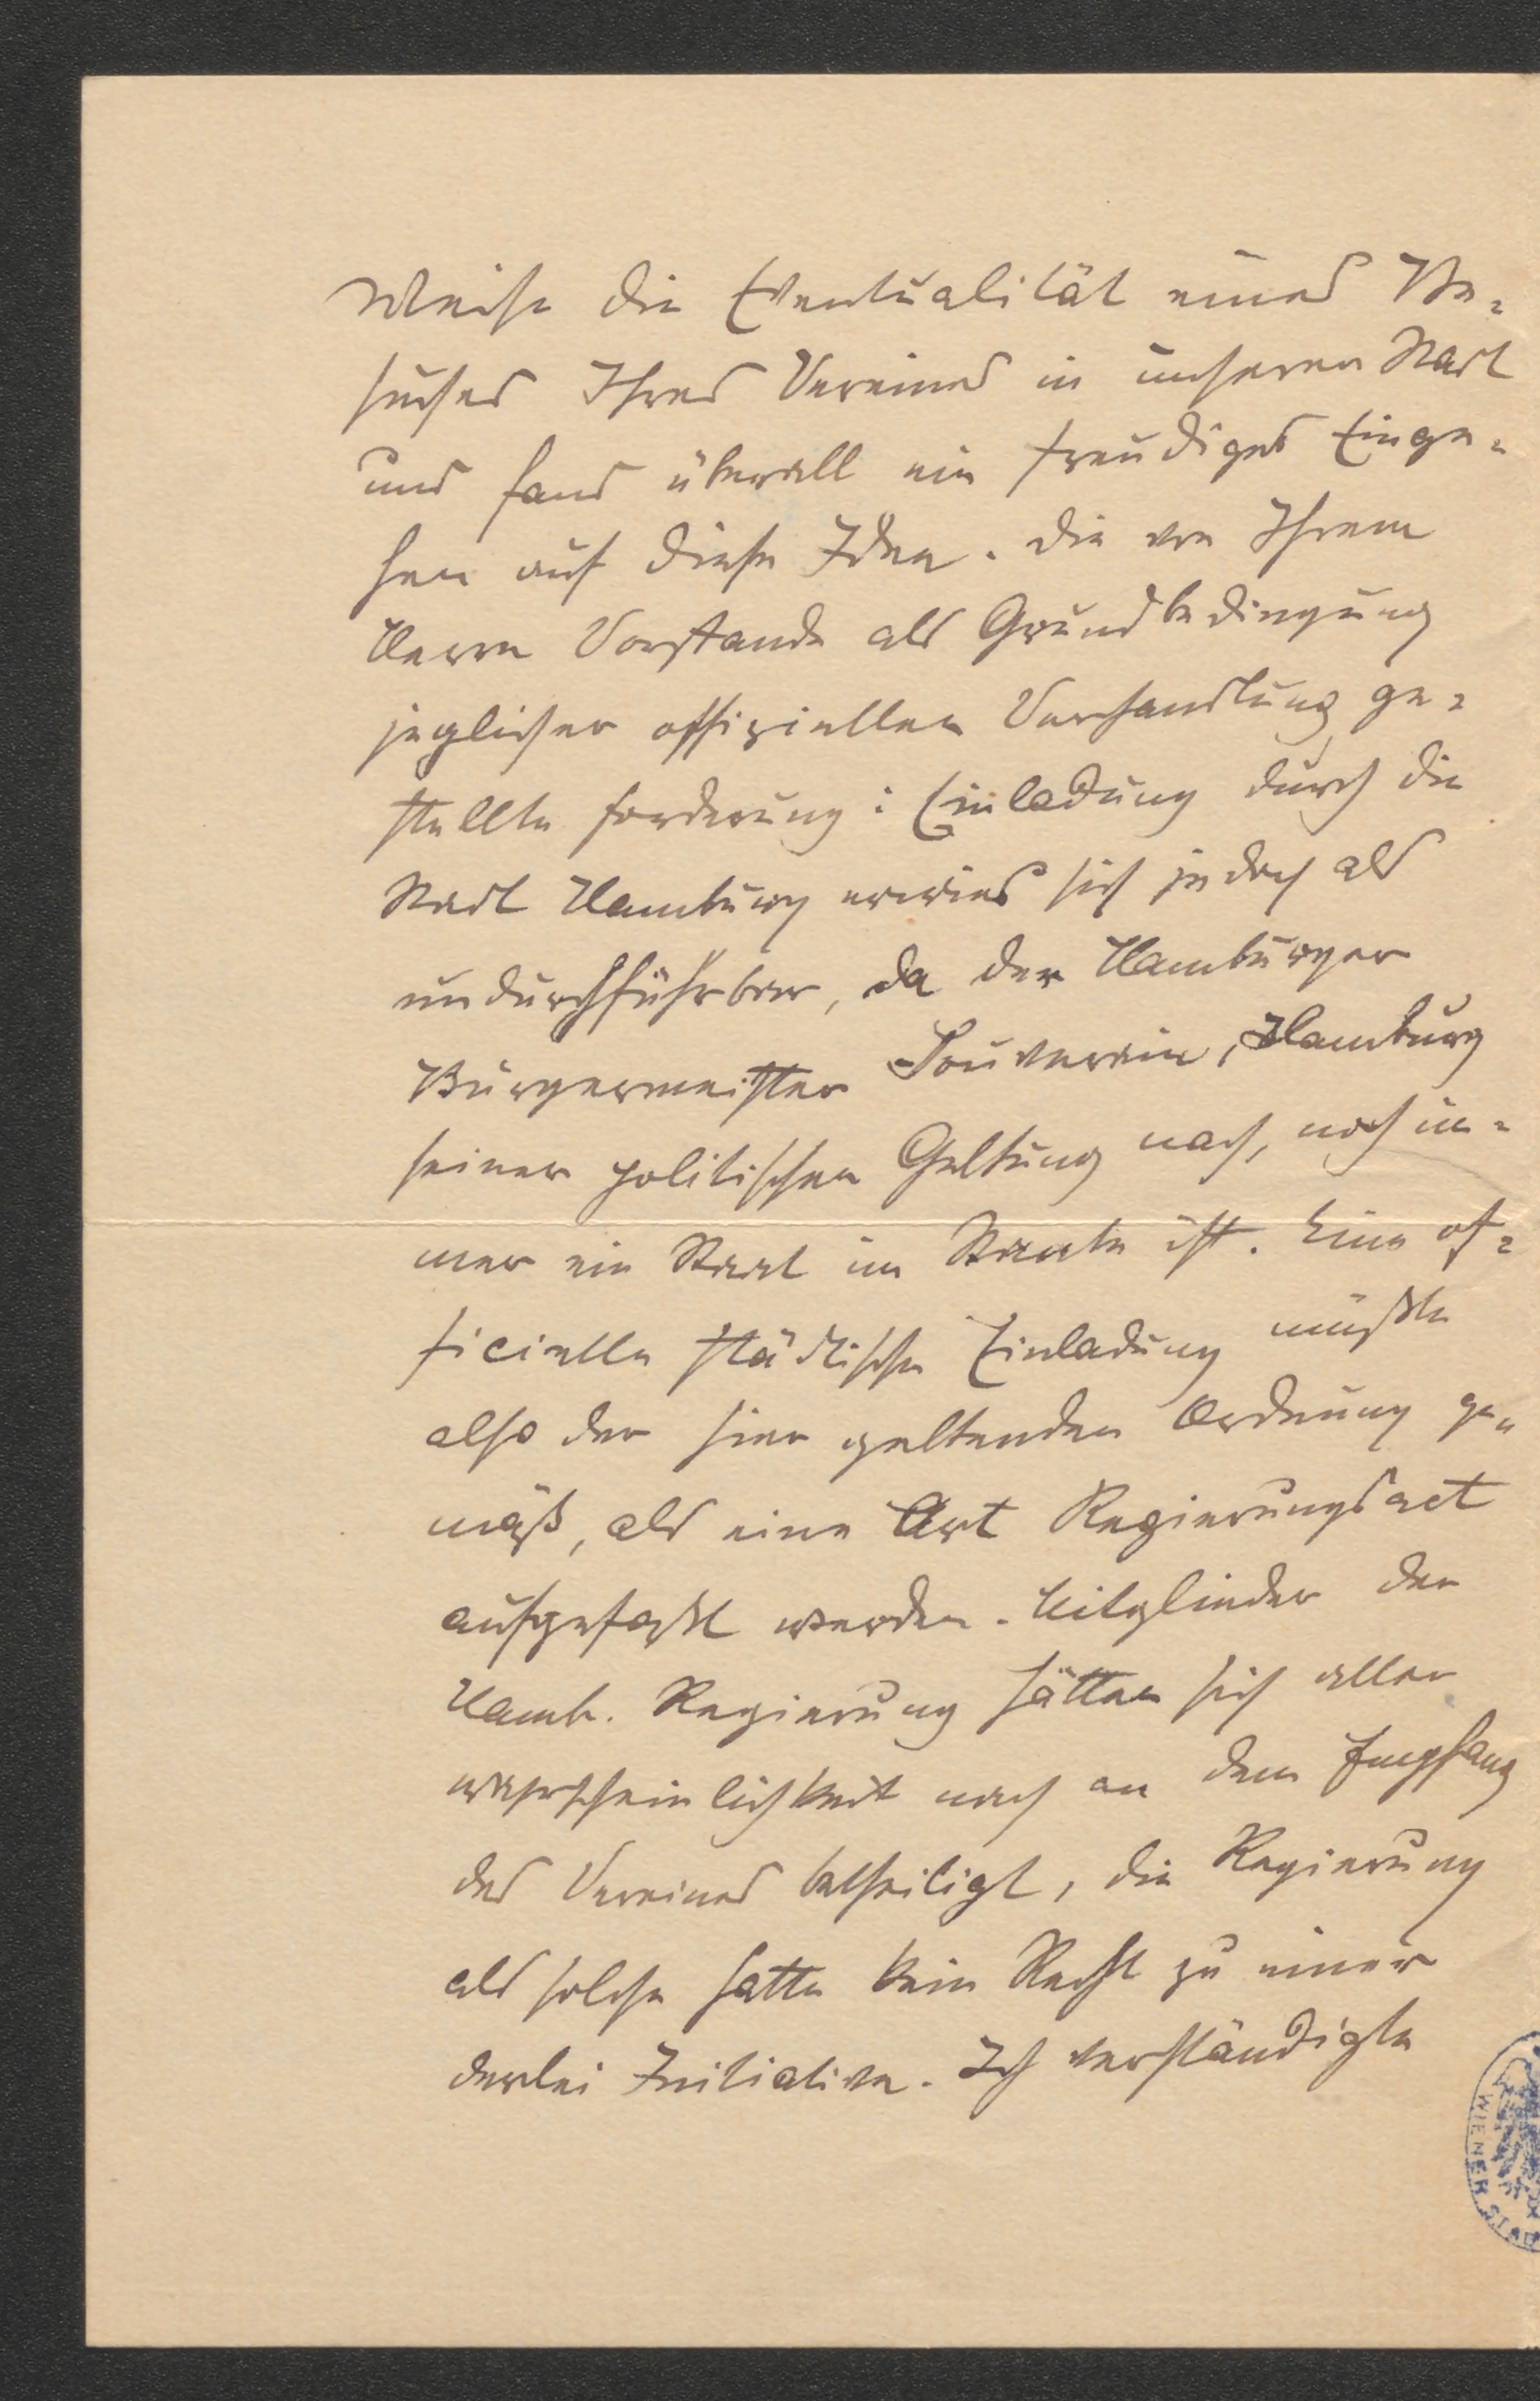 Weise die Eventualität eines Be-
suches Ihres Vereines in unserer Stadt
und fand überall ein freudiges Einge-
hen auf diese Idee. Die von Ihrem
Herrn Vorstande als Grundbedingung
jeglicher offiziellen Verhandlung ge-
stellte Forderung: Einladung durch die
Stadt Hamburg erwies sich jedoch als
undurchführbar, da der Hamburger
Bürgermeister Souverain, Hamburg
seiner politischen Geltung nach, noch im-
mer ein Staat im Staate ist. Eine of-
ficielle städtische Einladung müßte
also der hier geltenden Ordnung ge-
mäß, als eine Art Regierungsact
aufgefaßt werden. Mitglieder der
Hamb. Regierung hätten sich aller
warscheinlichkeit nach an dem Empfang
des Vereines betheiligt, die Regierung
als solche hatte kein Recht zu einer
derlei Initiative. Ich verständigte
WIENER